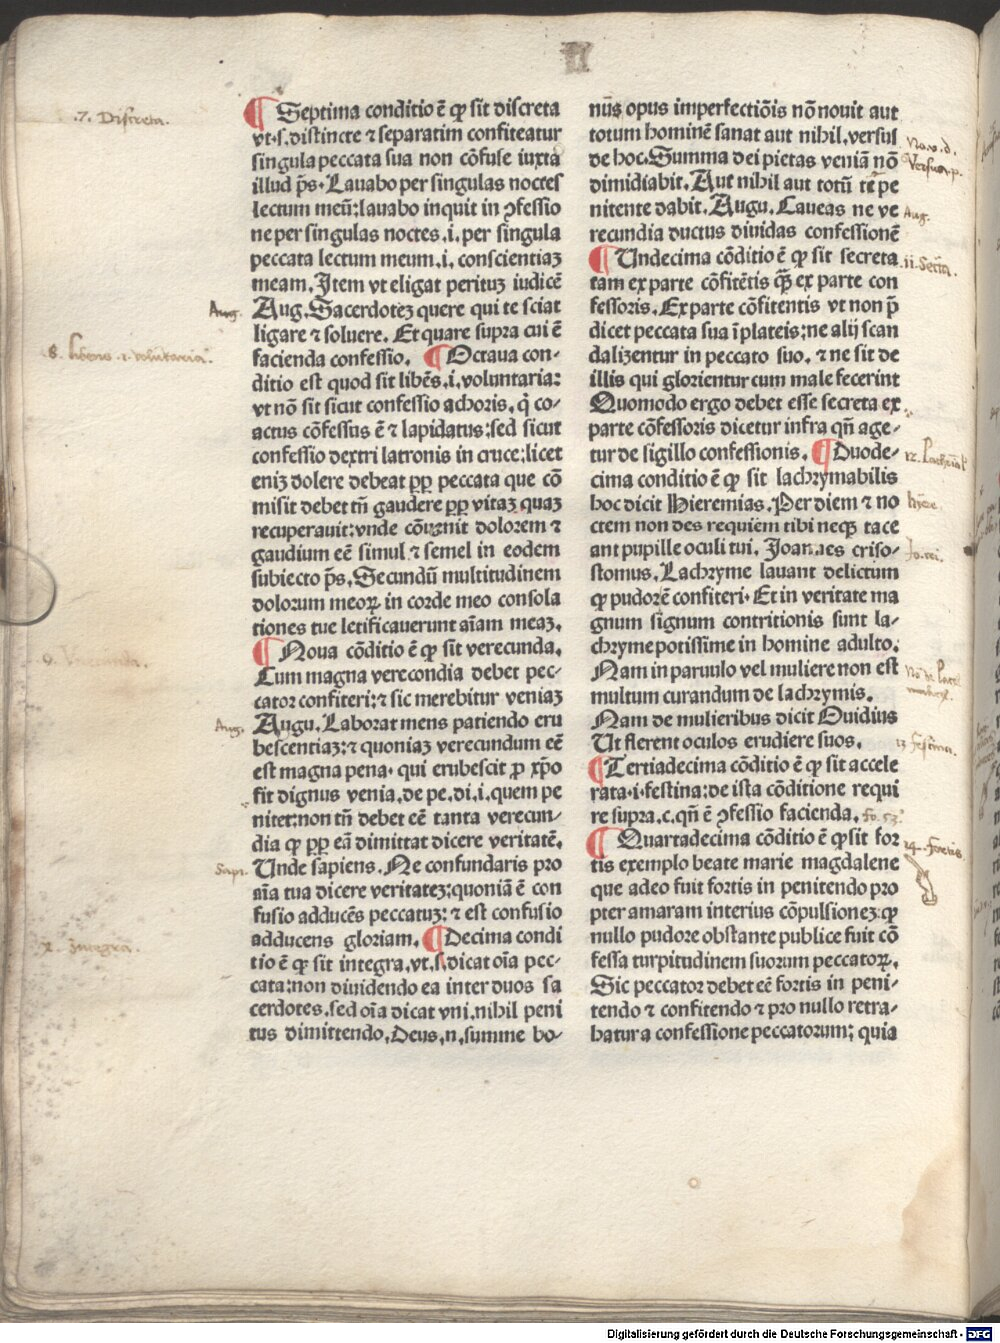 II
¶ Septima conditio ē ꝙ sit discreta
vt.s.distincte ⁊ separatim confiteatur
singula peccata sua non cōfuse iuxta
illud p̄s. Lauabo per singulas noctes
lectum meū:lauabo inquit in ↄfessio
ne per singulas noctes.i.per singula
peccata lectum meum.i.conscientiaꝫ
meam. Item vt eligat perituꝫ iudicē
Aug. Sacerdoteꝫ quere qui te sciat
ligare ⁊ soluere. Et quare supra cui ē
facienda confessio. ¶ Octaua con-
ditio est quod sit libēs.i.voluntaria:
vt nō sit sicut confessio achoris, q̇ co-
actus cōfessus ē ⁊ lapidatus:sed sicut
confessio dextri latronis in cruce:licet
eniꝫ dolere debeat ꝓpꝑ peccata que cō
misit debet tn̄ gaudere ꝓpꝑ vitaꝫ quaꝫ
recuperauit:vnde cōuenit dolorem ⁊
gaudium eē simul ⁊ semel in eodem
subiecto p̄s. Secundū multitudinem
dolorum meoꝝ in corde meo consola
tiones tue letificauerunt aīam meaꝫ.
¶ Nona cōditio ē ꝙ sit verecunda.
Cum magna verecondia debet pec-
cator confiteri:⁊ sic merebitur veniaꝫ
Augu. Laborat mens patiendo eru
bescentiaꝫ:⁊ quoniaꝫ verecundum eē
est magna pena. qui erubescit ꝓ xp̄o
fit dignus venia.de pe.di.i.quem pe
nitet:non tn̄ debet eē tanta verecun-
dia ꝙ ꝓpꝑ eā dimittat dicere veritatē.
Unde sapiens. Ne confundaris pro
aīa tua dicere veritateꝫ:quoniā ē con
fusio adducēs peccatuꝫ: ⁊ est confusio
adducens gloriam. ¶ Decima condi
tio ē ꝙ sit integra.vt.s.dicat oīa pec-
cata:non diuidendo ea inter duos sa
cerdotes.sed oīa dicat vni.nihil peni
tus dimittendo. Deus.n.summe bo-
nūs opus imperfectiōis nō nouit aut
totum hominē sanat aut nihil.versus
de hoc. Summa dei pietas veniā nō
dimidiabit. Aut nihil aut totū te pe
nitente dabit. Augu. Caueas ne ve
recundia ductus diuidas confessionē
¶ Undecima cōditio ē ꝙ sit secreta
tam ex parte cōfitētis q̄ꝫ ex parte con
fessoris. Ex parte cōfitentis vt non p̄
dicet peccata sua ī plateis:ne alij scan
dalizentur in peccato suo. ⁊ ne sit de
illis qui glorientur cum male fecerint
Quomodo ergo debet esse secreta ex
parte cōfessoris dicetur infra qn̄ age-
tur de sigillo confessionis. ¶ Duode-
cima conditio ē ꝙ sit lachrymabilis
hoc dicit Hieremias. Per diem ⁊ no
ctem non des requiem tibi neqꝫ tace
ant pupille oculi tui. Joannes criso-
stomus. Lachryme lauant delictum
ꝙ pudorē confiteri. Et in veritate ma
gnum signum contritionis sunt la-
chryme potissime in homine adulto:
Nam in paruulo vel muliere non est
multum curandum de lachrymis.
Nam de mulieribus dicit Ouidius
Ut flerent oculos erudiere suos.
¶ Tertiadecima cōditio ē ꝙ sit accele
rata.i.festina:de ista cōditione requi
re supra.c.qn̄ ē ↄfessio facienda. fo. 53.
¶ Quartadecima cōditio ē ꝙ sit for
tis exemplo beate marie magdalene
que adeo fuit fortis in penitendo pro
pter amaram interius cōpulsioneꝫ ꝙ
nullo pudore obstante publice fuit cō
fessa turpitudinem suorum peccatoꝝ.
Sic peccator debet eē fortis in peni-
tendo ⁊ confitendo ⁊ pro nullo retra-
hatur a confessione peccatorum; quia
.7. Discreta.
Aug.
8. libens .i. voluntaria.
9. Verecunda.
Aug.
Sapi.
x. Integra.
Aug.
11. Secreta.
12.
Hiere.
13 festina.
14. fortis
Digitalisierung gefördert durch die Deutsche Forschungsgemeinschaft - DFG